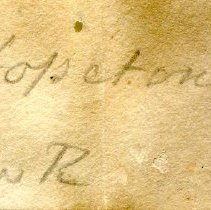 Hopeton
w R